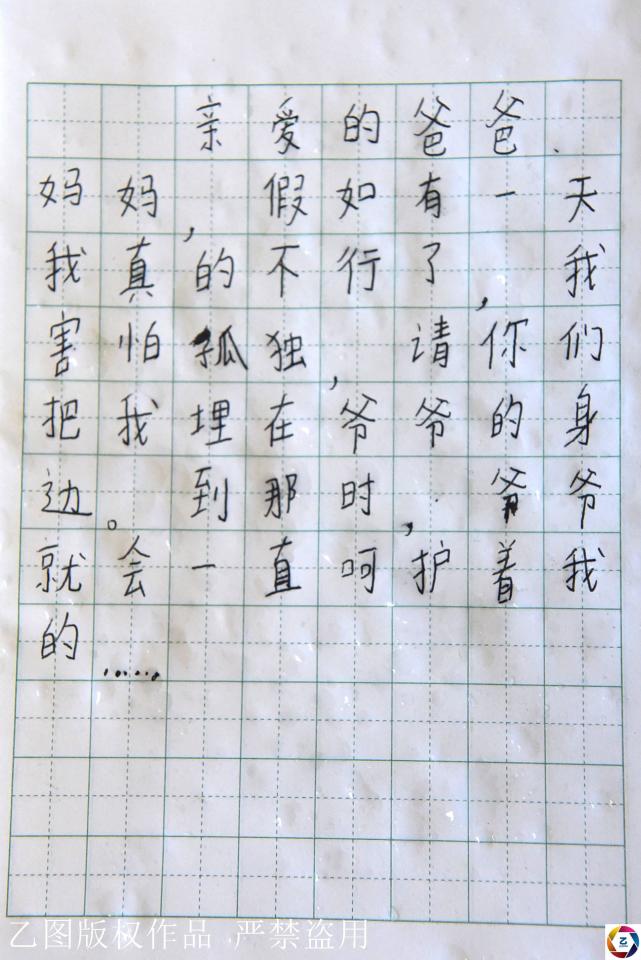 亲爱的爸爸.
妈妈,假如有一天
我真的不行了,我
害怕孤独,请你们
把我埋在爷爷的身
边。到那时,爷爷
就会一直呵护着我
的......
乙图版权作品 严禁盗用
乙